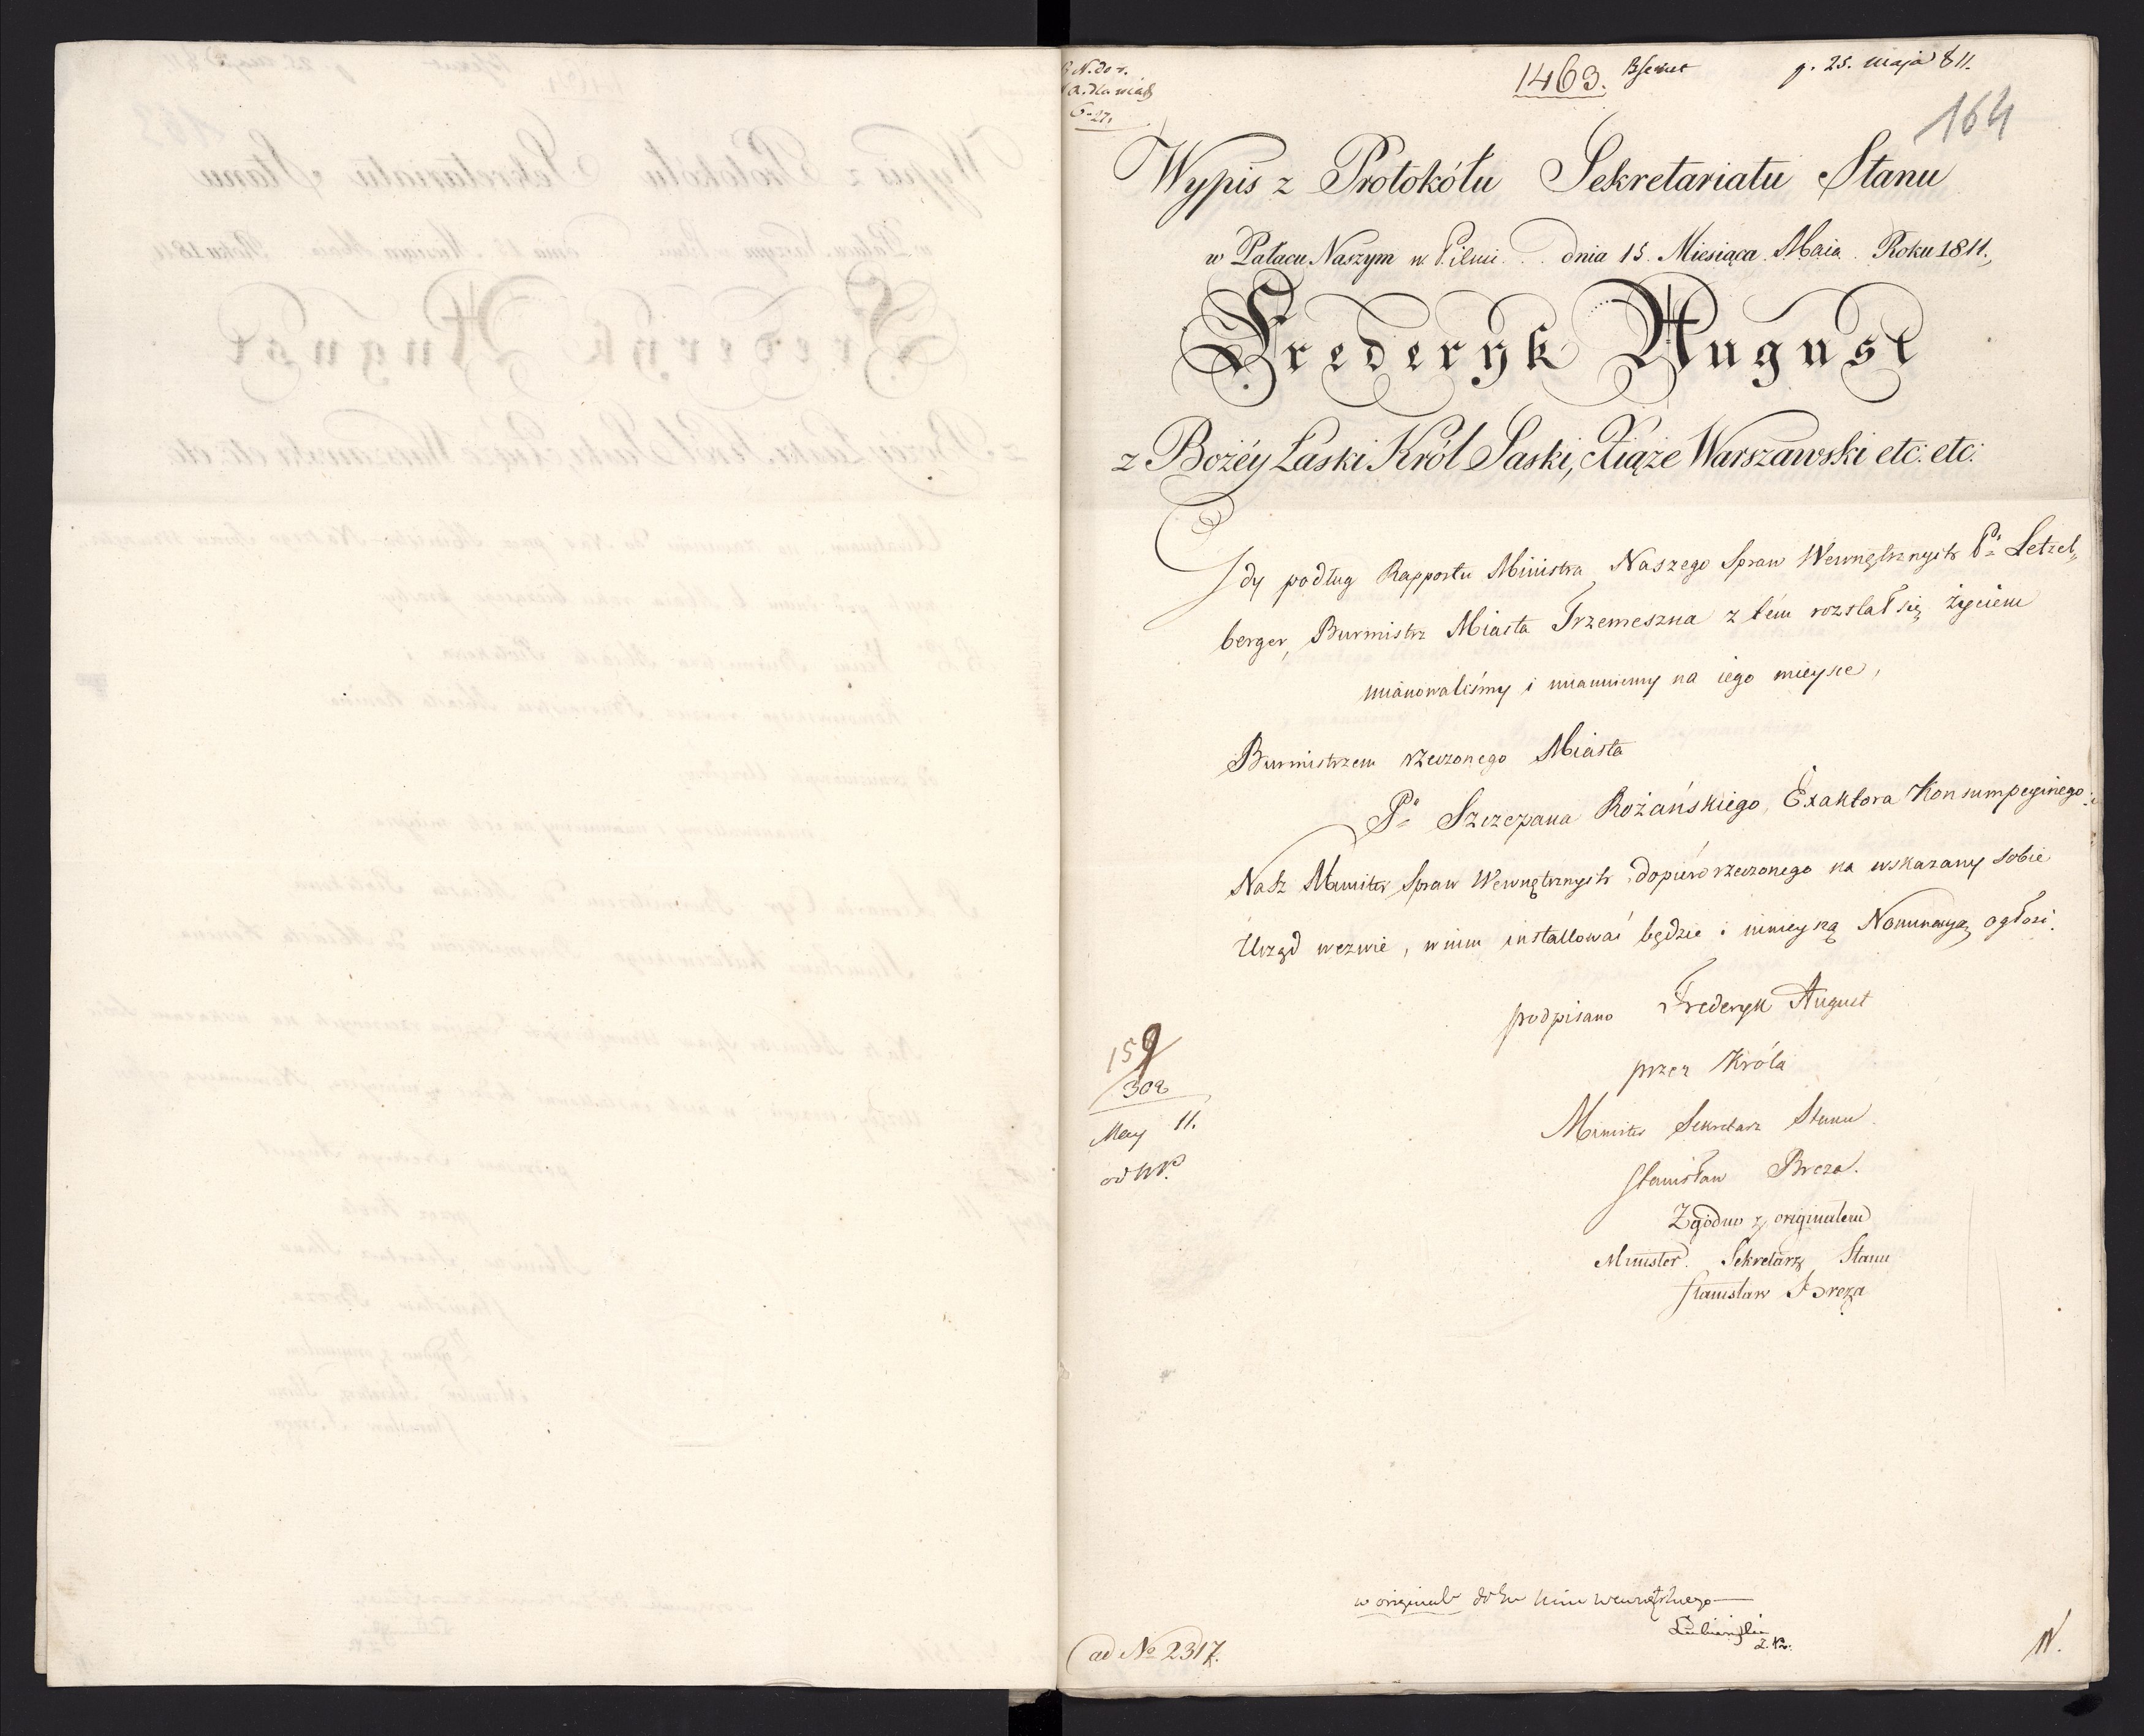 1463. p. 25. maja 811.
164
Wypis z Protokółu Sekretariatu Stanu
w Pałacu Naszym w Pilnic dnia 15. Miesiąca Maia Roku 1811.
Frederyk August
z Bożéy Łaski Król Saski, Xiąże Warszawski etc: etc:
Gdy podług Rapportu Ministra Naszego Spraw Wewnętrznych Pa. Letzel,
berger, Burmistrz Miasta Trzemeszna z tém rozstał się życiem
mianowaliśmy i mianuiemy na iego mieysce,
Burmistrzem rzeczonego Miasta
Pa. Szczepana Rożańskiego, Exaktora Konsumpcyinego:
Nasz Minister Spraw Wewnętrznych dopiéro rzeczonego na wskazany sobie
Urząd wezwie, w nim installować będzie i ninieyszą Nominacyą ogłosi.
podpisano Frederyk August
przez Króla
Minister Sekretarz Stanu
Stanisław Breza.
Zgodno z originałem
Minister Sekretarz Stanu
Stanisław Breza
159
302
May 11.
w originale do
Lubieński
ad No 2317.